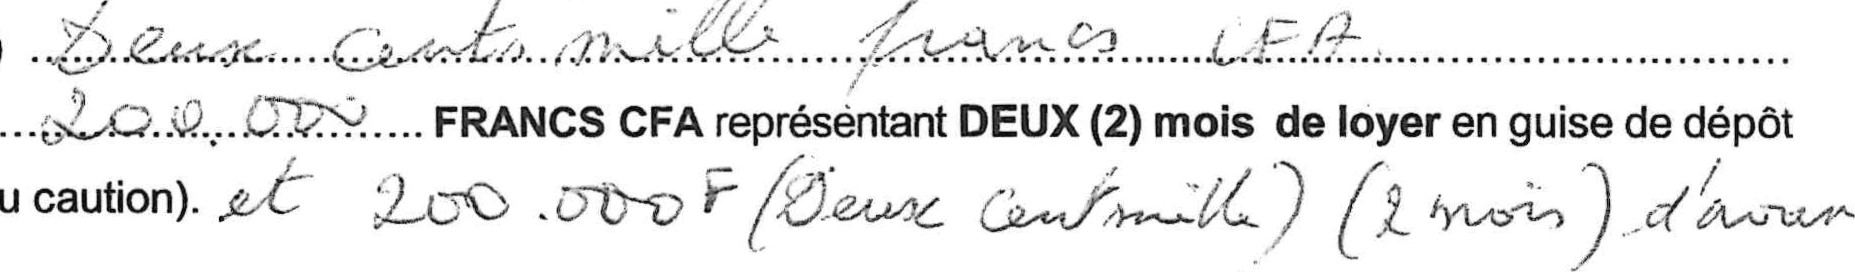 ) Deux cents mille francs CFA
200.000 FRANCS CFA représentant DEUX (2) mois de loyer en guise de dépôt
u caution). et 200.000 F (Deux cent mille) (2 mois) d'avan